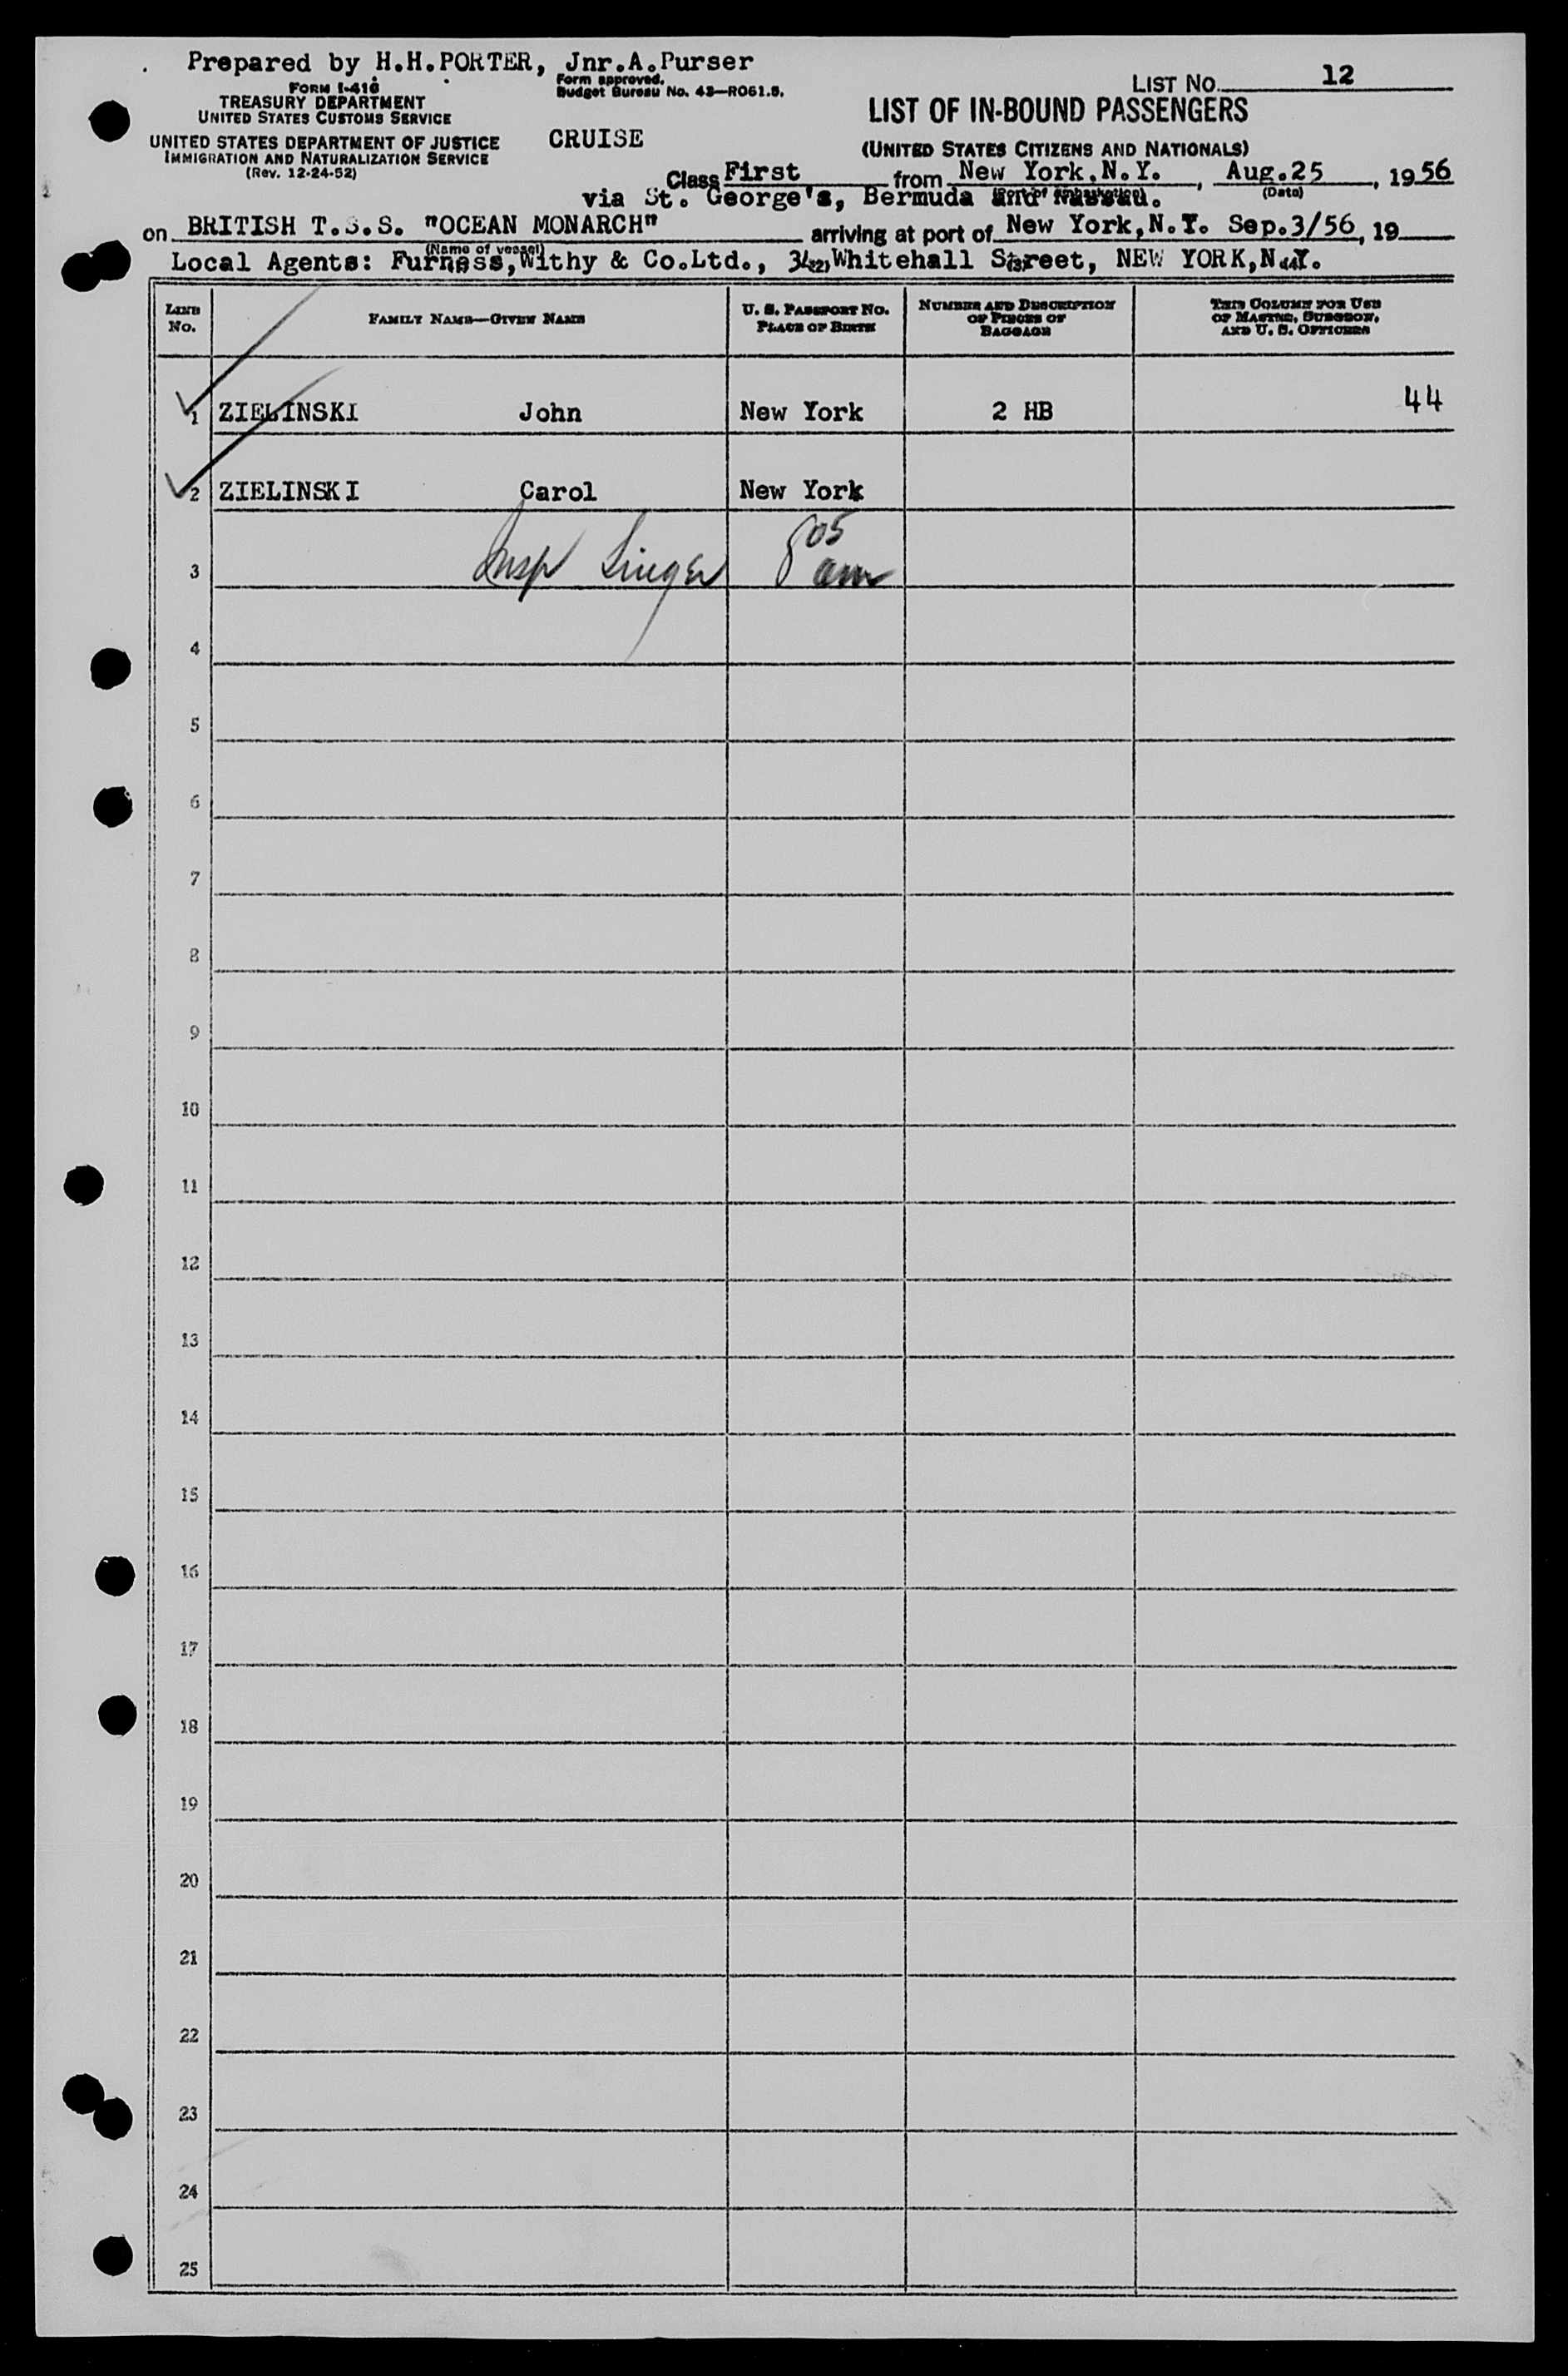 Prepared by H.H.PORTER, Jnr.A.Purser
FORM I-418
TREASURY DEPARTMENT
UNITED STATES CUSTOMS SERVICE
UNITED STATES DEPARTMENT OF JUSTICE
IMMIGRATION AND NATURALIZATION SERVICE
(Rev. 12-24-52)
Form approved.
Budget Bureau No. 43—RO61.5.
CRUISE
LIST NO. 12
LIST OF IN-BOUND PASSENGERS
(UNITED STATES CITIZENS AND NATIONALS)
Class First from New York, N.Y. , Aug.25 , 1956
(Port of embarkation) (Date)
via St. George's, Bermuda and Nassau.
on BRITISH T.S.S. "OCEAN MONARCH" arriving at port of New York, N.Y. Sep.3/56, 19
(Name of vessel)
Local Agents: Furness, Withy & Co.Ltd., 34, Whitehall Street, NEW YORK, N.Y.
(1) (2) (3) (4)
LINE No. FAMILY NAME—GIVEN NAME U. S. PASSPORT NO. PLACE OF BIRTH NUMBER AND DESCRIPTION OF PIECES OF BAGGAGE THIS COLUMN FOR USE OF MASTER, SURGEON, AND U. S. OFFICERS
1 ZIELINSKI John New York 2 HB 44
2 ZIELINSKI Carol New York
3 Insp Singer 8 05 am
4
5
6
7
8
9
10
11
12
13
14
15
16
17
18
19
20
21
22
23
24
25